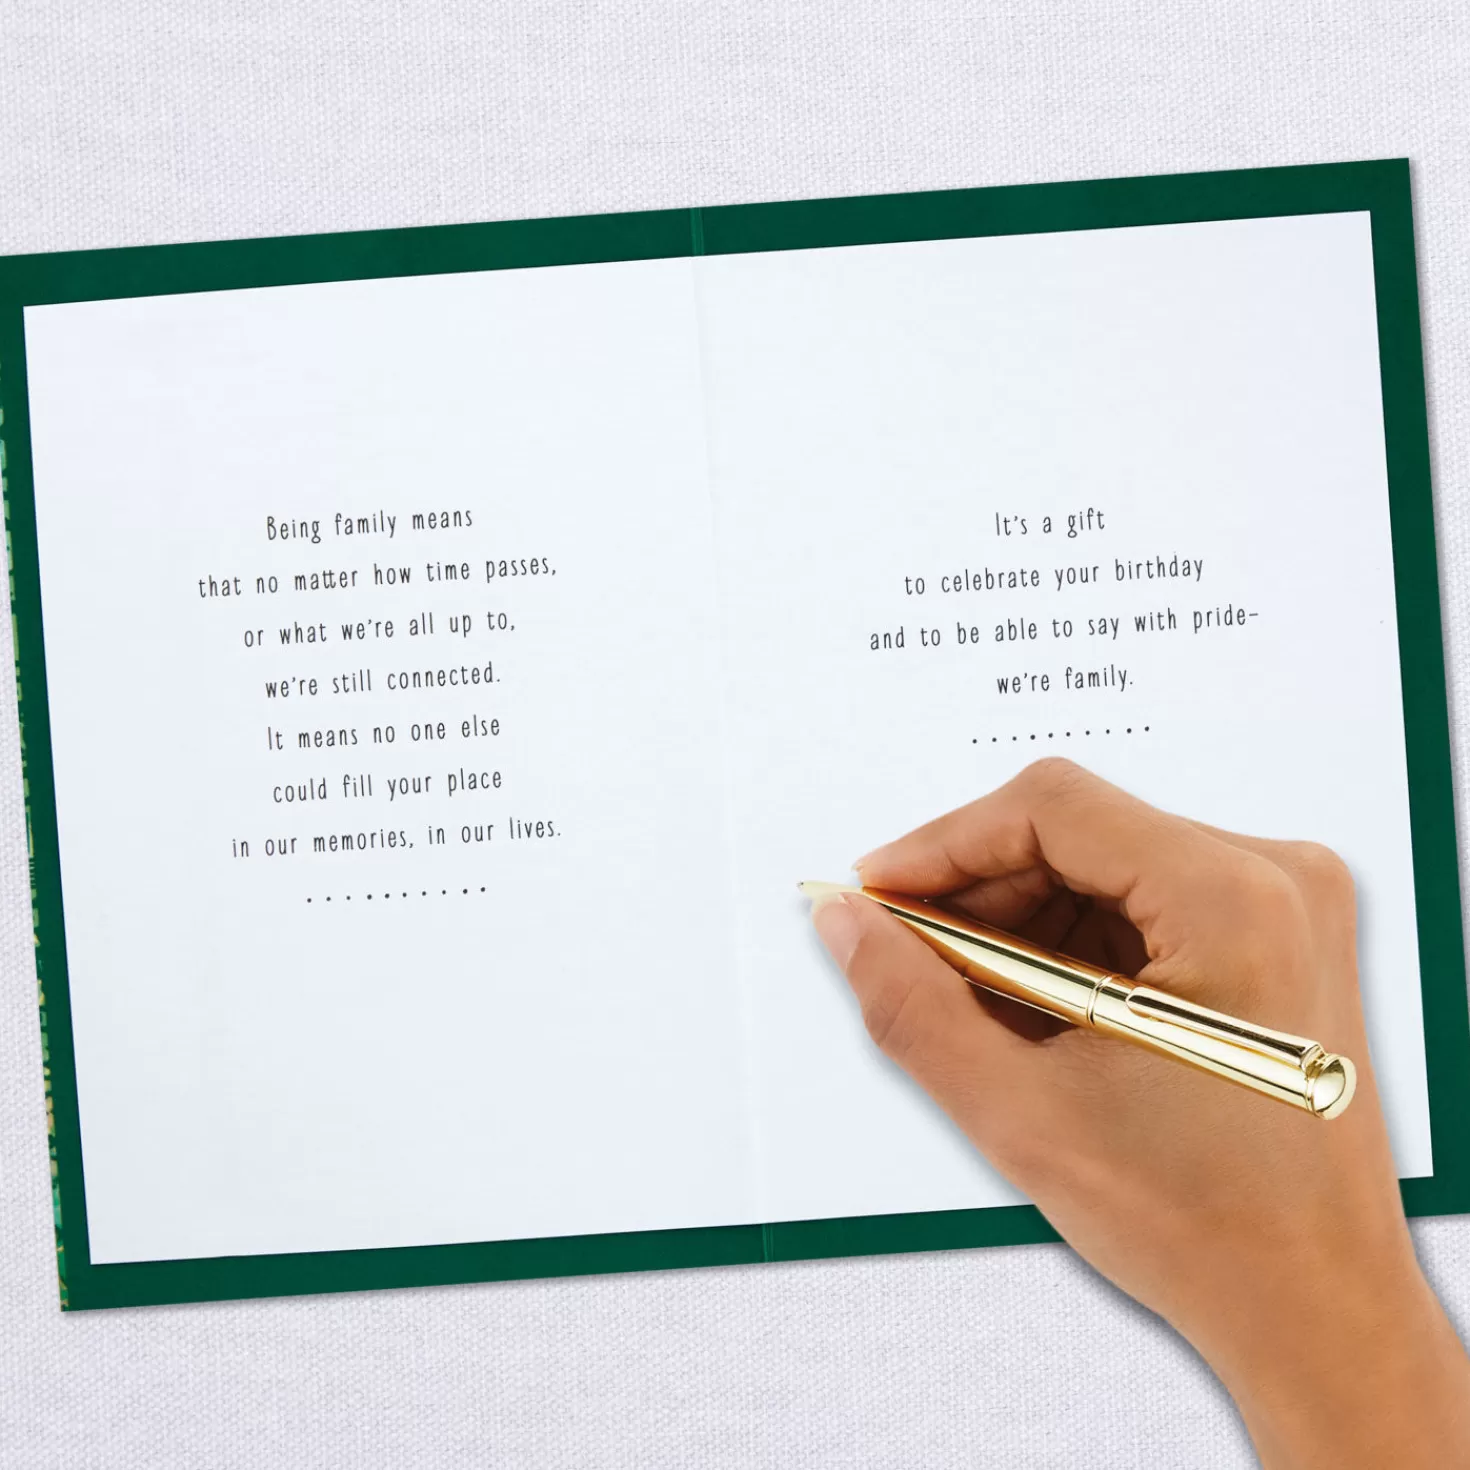 Being family means
that no matter how time passes,
or what we're all up to,
we're still connected.
It means no one else
could fill your place
in our memories, in our lives.
..........
It's a gift
to celebrate your birthday
and to be able to say with pride–
we're family.
..........